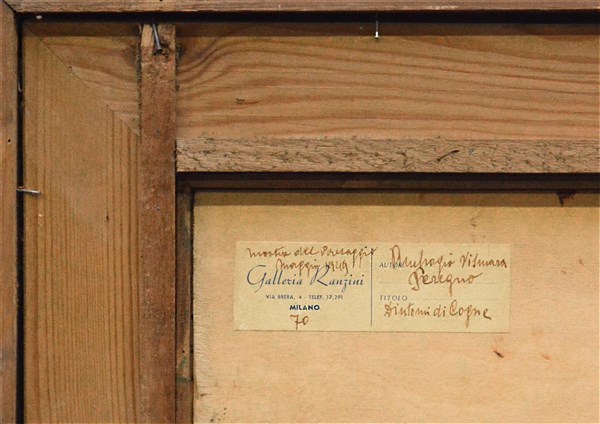 Mostra del Paesaggio
Maggio 1949
Galleria Ranzini
VIA BRERA, 4 - TELEF. 17,291
MILANO
70
AUTORE Vismara
Peregno
TITOLO
Dintorni di Cogne